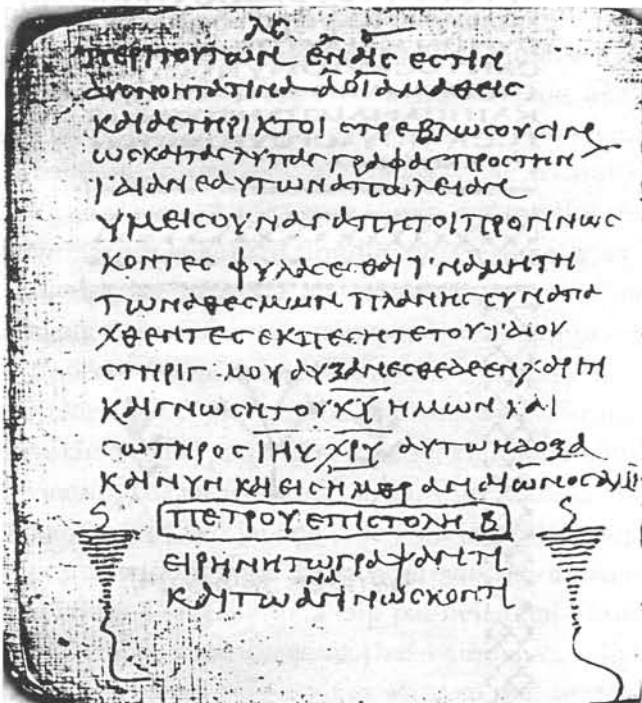 ΛϚ
ΠΕΡΙΤΟΥΤΩΝ ΕΝΑΙϹ ΕϹΤΙΝ
ΔΥϹΝΟΗΤΑΤΙΝΑ ΑΟΙΑΜΑΘΕΙϹ
ΚΑΙΑϹΤΗΡΙΚΤΟΙ ϹΤΡΕΒΛΩϹΟΥϹΙΝ
ΩϹΚΑΙΤΑϹΛΥΠΑϹ ΓΡΑΦΑϹΠΡΟϹΤΗΝ
ΪΔΙΑΝΕΑΥΤΩΝΑΠΩΛΕΙΑΝ
ΥΜΕΙϹΟΥΝΑΓΑΠΗΤΟΙΠΡΟΓΙΝΩϹ
ΚΟΝΤΕϹ ΦΥΛΑϹΕϹΘΑΙ ΪΝΑΜΗΤΗ
ΤΩΝΑΘΕϹΜΩΝ ΠΛΑΝΗϹϹΥΝΑΠΑ
ΧΘΕΝΤΕϹ ΕΚΠΕϹΗΤΕΤΟΥΪΔΙΟΥ
ϹΤΗΡΙΓΜΟΥΑΥΞΑΝΕϹΘΕΔΕΕΝΧΑΡΙΤΙ
ΚΑΙΓΝΩϹΗΤΟΥΚ̅Υ̅ ΗΜΩΝ ΚΑΙ
ϹΩΤΗΡΟϹ Ι̅Η̅Υ̅ Χ̅Ρ̅Υ̅ ΑΥΤΩΗΔΟΞΑ
ΚΑΙΝΥΝ ΚΑΙΕΙϹΗΜΕΡΑΝΑΙΩΝΟϹΑΜΗΝ
ΠΕΤΡΟΥΕΠΙϹΤΟΛΗ Β̅
ΕΙΡΗΝΗΤΩΓΡΑΨΑΝΤΙ
ΚΑΙΤΩΑΝΑΓΙΝΩϹΚΟΝΤΙ